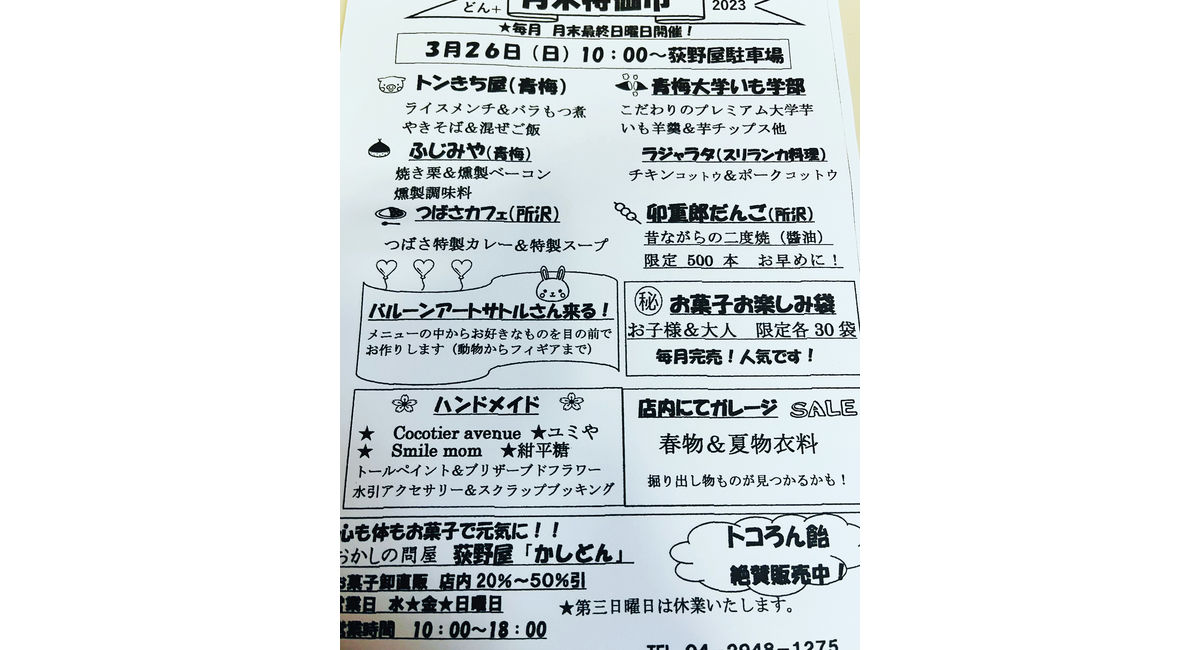 どん+
月末特価市
2023
★毎月 月末最終日曜日開催!
3月26日(日)10:00~荻野屋駐車場
トンきち屋(青梅)
ライスメンチ&バラもつ煮
やきそば&混ぜご飯
青梅大学いも学部
こだわりのプレミアム大学芋
いも羊羹&芋チップス他
ふじみや(青梅)
焼き栗&燻製ベーコン
燻製調味料
ラジャラタ(スリランカ料理)
チキンコットゥ&ポークコットゥ
つばさカフェ(所沢)
つばさ特製カレー&特製スープ
卯重郎だんご(所沢)
昔ながらの二度焼(醬油)
限定 500 本 お早めに!
バルーンアートサトルさん来る!
メニューの中からお好きなものを目の前で
お作りします(動物からフィギアまで)
㊙ お菓子お楽しみ袋
お子様&大人 限定各30袋
毎月完売!人気です!
ハンドメイド
★ Cocotier avenue ★ユミや
★ Smile mom ★紺平糖
トールペイント&プリザーブドフラワー
水引アクセサリー&スクラップブッキング
店内にてガレージ SALE
春物&夏物衣料
掘り出し物ものが見つかるかも!
心も体もお菓子で元気に!!
おかしの問屋 荻野屋「かしどん」
お菓子卸直販 店内20%~50%引
営業日 水★金★日曜日
営業時間 10:00~18:00
トコろん飴
絶賛販売中!
★第三日曜日は休業いたします。
TEL 04-2948-1275